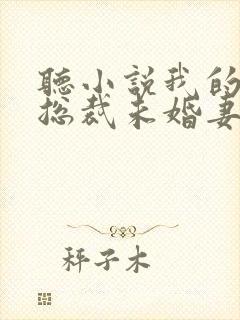 聽小説我的
総裁未婚妻
秤子木